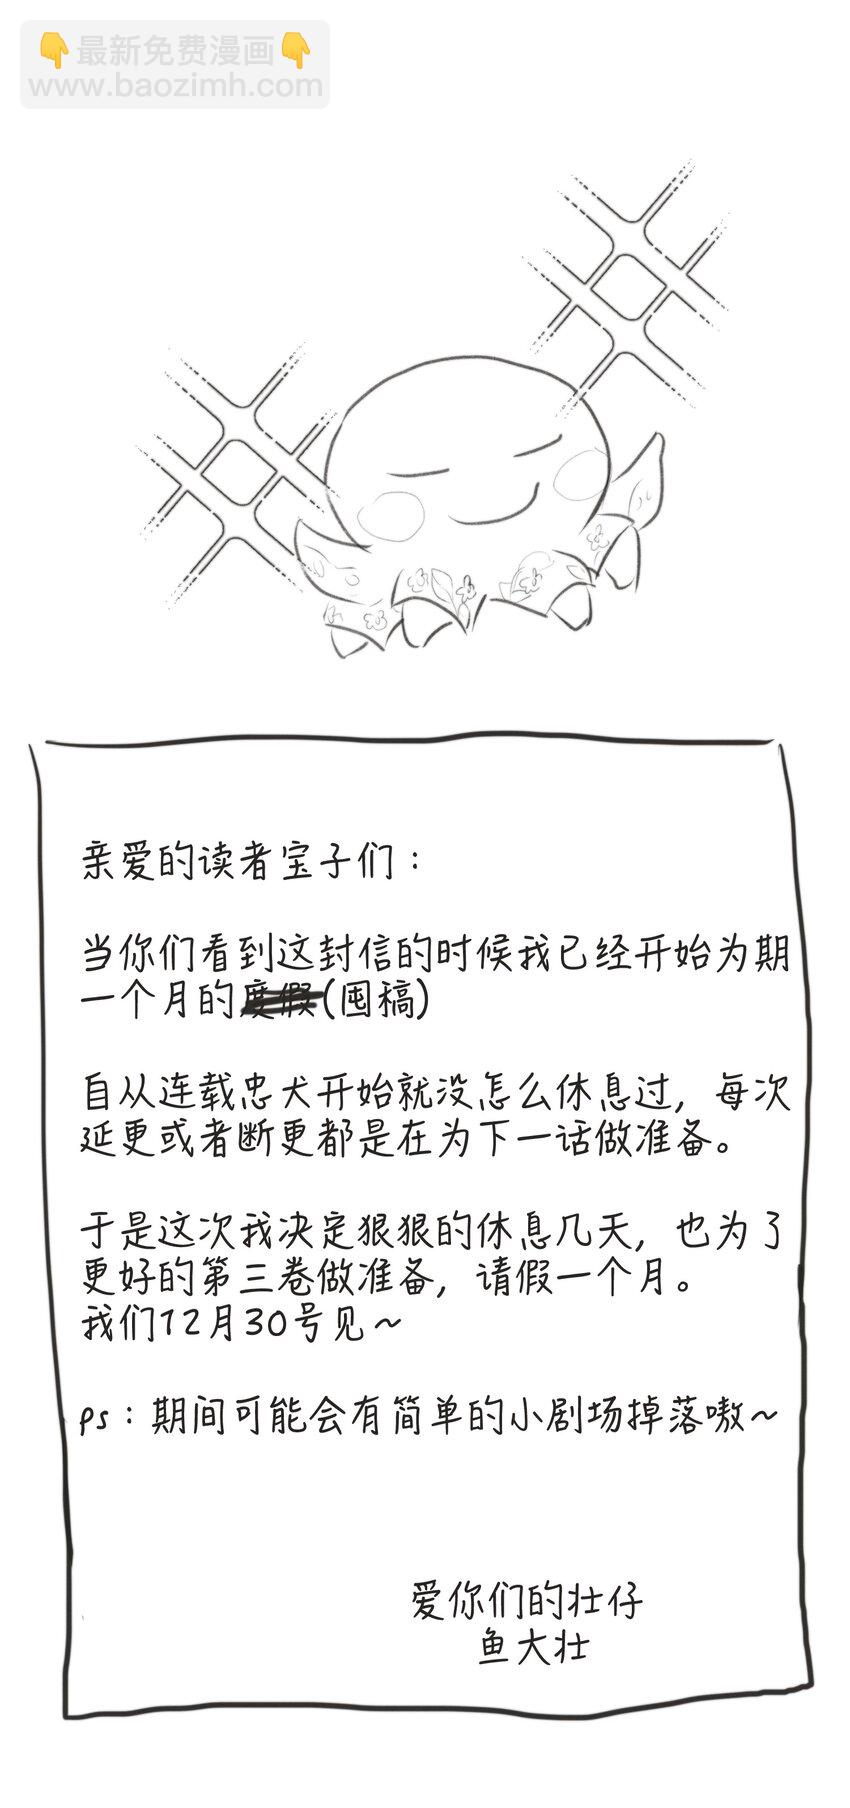 👇最新免费漫画👇
www.baozimh.com
亲爱的读者宝子们：
当你们看到这封信的时候我已经开始为期
一个月的度假(囤稿)
自从连载忠犬开始就没怎么休息过，每次
延更或者断更都是在为下一话做准备。
于是这次我决定狠狠的休息几天，也为了
更好的第三卷做准备，请假一个月。
我们12月30号见～
ps：期间可能会有简单的小剧场掉落嗷～
爱你们的壮仔
鱼大壮